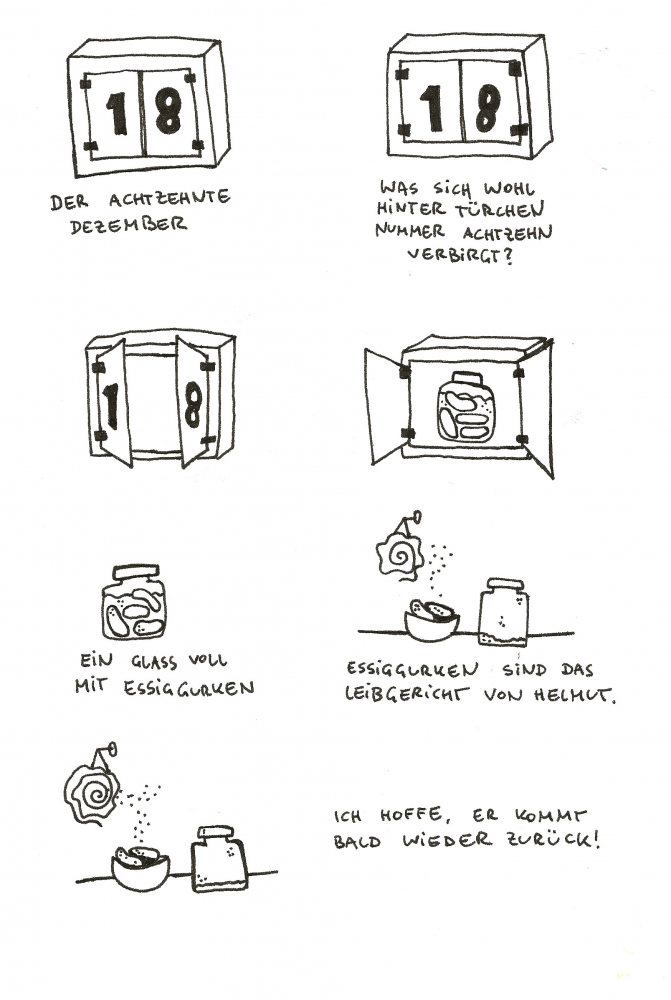 18
DER ACHTZEHNTE
DEZEMBER
18
WAS SICH WOHL
HINTER TÜRCHEN
NUMMER ACHTZEHN
VERBIRGT?
1 8
EIN GLASS VOLL
MIT ESSIGGURKEN
ESSIGGURKEN SIND DAS
LEIBGERICHT VON HELMUT.
ICH HOFFE, ER KOMMT
BALD WIEDER ZURÜCK!